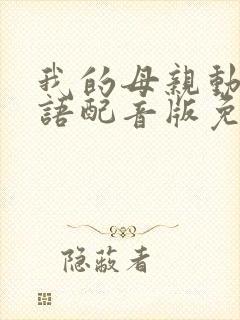 我的母親動
語配音版免
隐蔽者